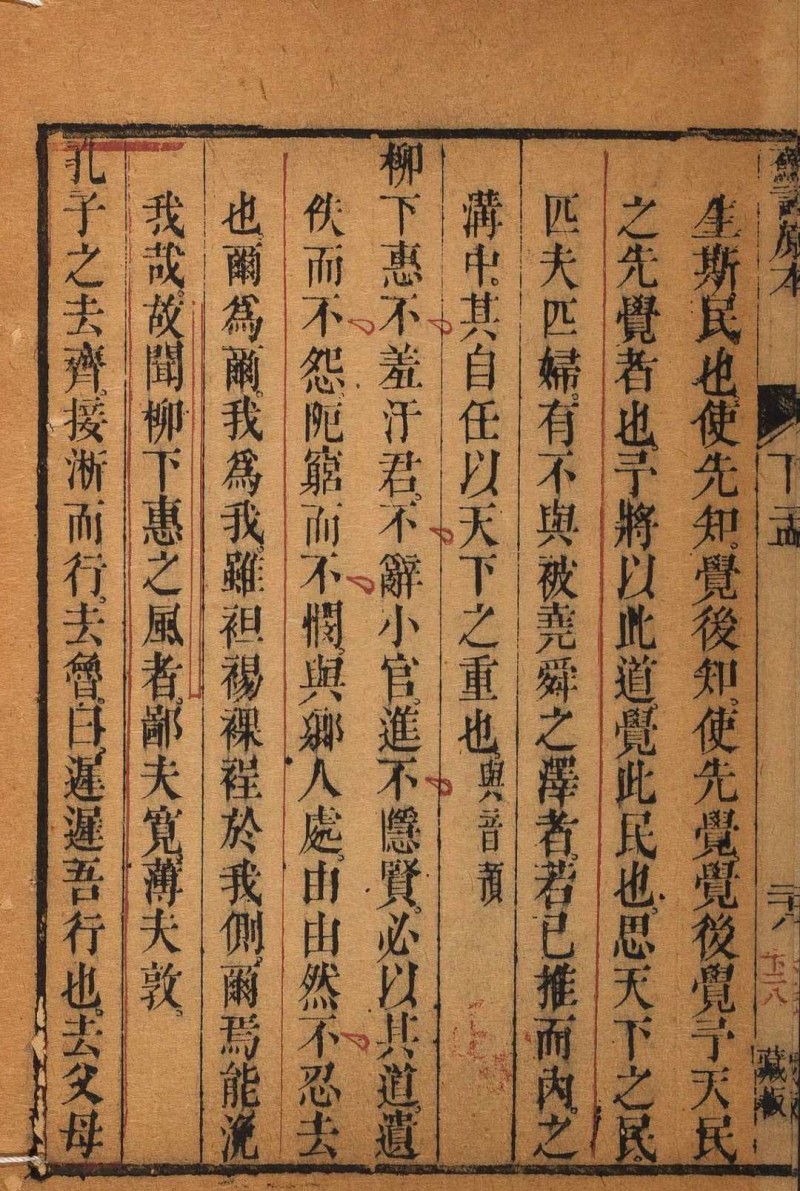 下孟
藏板
生斯民也使先知。覺後知。使先覺覺後覺予天民
之先覺者也。予將以此道。覺此民也。思天下之民。
匹夫匹婦。有不與被堯舜之澤者。若已推而內。之
溝中。其自任以天下之重也。與音預
柳下惠不羞汙君。不辭小官。進不隱賢。必以其道。遺
佚而不怨。阨窮而不憫。與鄉人處。由由然不忍去
也。爾爲爾。我爲我。雖袒裼裸裎於我側。爾焉能浼
我哉。故聞柳下惠之風者。鄙夫寬。薄夫敦。
孔子之去齊。接淅而行。去魯。曰。遲遲吾行也。去父母